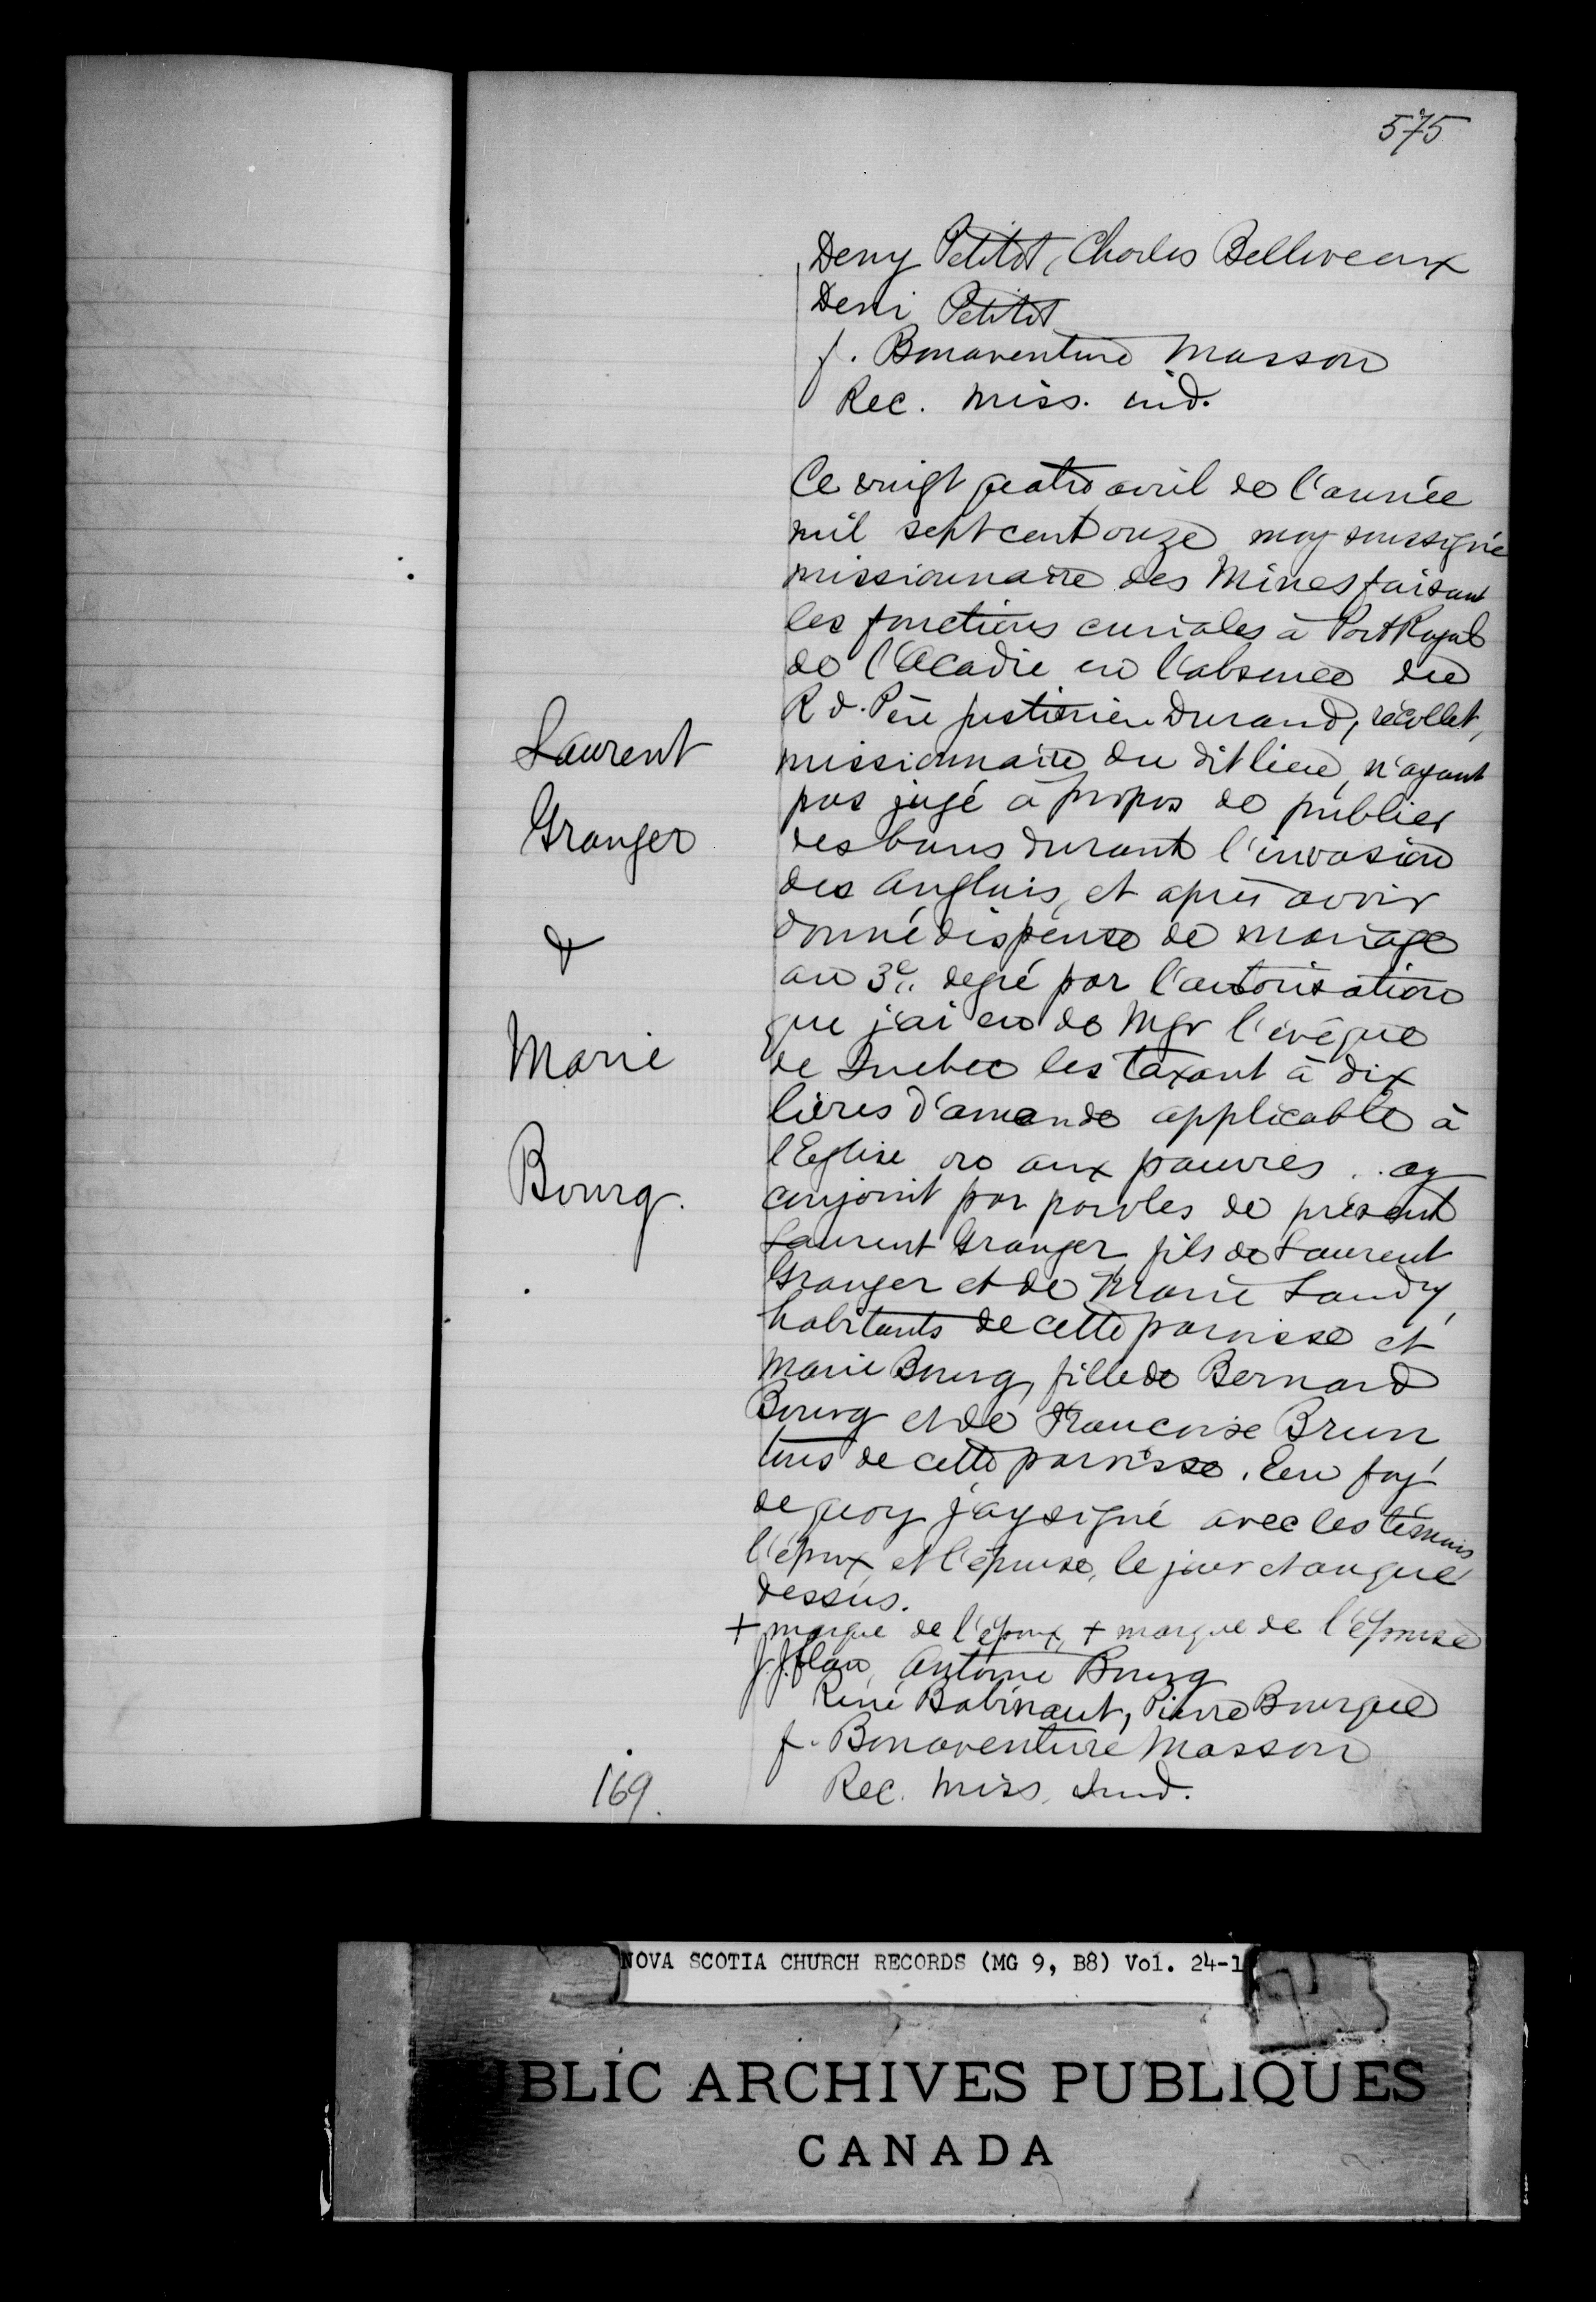 575
Deny Petitot, Charles Belliveaux
Deni Petitot
f. Bonaventure Masson
Rec. Miss. ind.
Ce vingt quatre avril de l'année
mil sept cent onze moy soussigné
missionnaire des Mines faisant
les fonctions curiales à Port Royal
de l'Acadie en l'absence du
R d. Père Justinien Durand, récollet,
missionnaire du dit lieu, n'ayant
pas jugé à propos de publier
des bans durant l'invasion
des Anglais, et après avoir
donné dispense de mariage
au 3e. degré par l'autorisation
que j'ai eu de Mgr l'évêque
de Quebec les taxant à dix
livres d'amande applicable à
l'Eglise ou aux pauvres . . ay
conjoint par paroles de présent
Laurent Granger fils de Laurent
Granger et de Marie Landry,
habitants de cette paroisse et
Marie Bourg, fille de Bernard
Bourg et de Francoise Brun
tous de cette paroisse. En foy
de quoy j'ay signé avec les témoins
l'époux et l'épouse, le jour et an que
dessus.
+ marque de l'époux, + marque de l'épouse
Antoine Bourg
René Babinaut, Pierre Bourgue
f. Bonaventure Masson
Rec. Miss. Ind.
Laurent
Granger
&
Marie
Bourg.
169.
NOVA SCOTIA CHURCH RECORDS (MG 9, B8) Vol. 24-1
BLIC ARCHIVES PUBLIQUES
CANADA